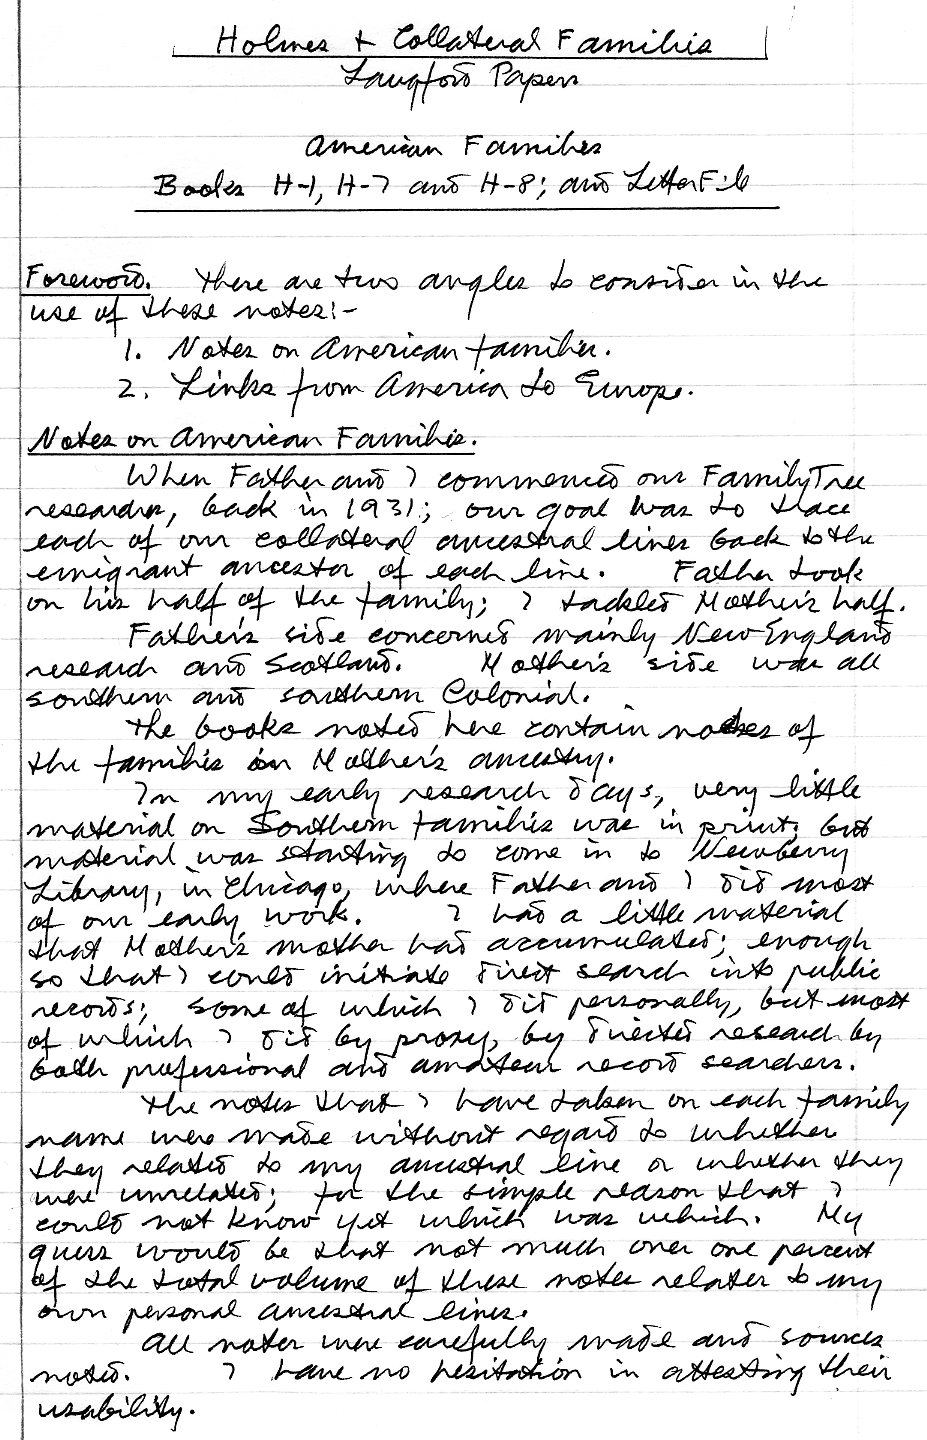 Holmes & Collateral Families
Langford Papers
American Families
Books H-1, H-7 and H-8; and Letter File
Foreword. There are two angles to consider in the
use of these notes:-
1. Notes on American families.
2. Links from America to Europe.
Notes on American Families.
When Father and I commenced our Family Tree
researches, back in 1931; our goal was to trace
each of our collateral ancestral lines back to the
emigrant ancestor of each line. Father took
on his half of the family; I tackled Mother's half.
Father's side concerned mainly New England
research and Scotland. Mother's side was all
southern and southern Colonial.
The books noted here contain notes of
the families in Mother's ancestry.
In my early research days, very little
material on Southern families was in print, but
material was starting to come in to Newberry
Library, in Chicago, where Father and I did most
of our early work. I had a little material
that Mother's mother had accumulated; enough
so that I could initiate direct search into public
records; some of which I did personally, but most
of which I did by proxy, by directed research by
both professional and amateur record searchers.
The notes that I have taken on each family
name were made without regard to whether
they related to my ancestral line or whether they
were unrelated; for the simple reason that I
could not know yet which was which. My
guess would be that not much over one percent
of the total volume of these notes relates to my
own personal ancestral lines.
All notes were carefully made and sources
noted. I have no hesitation in attesting their
usability.